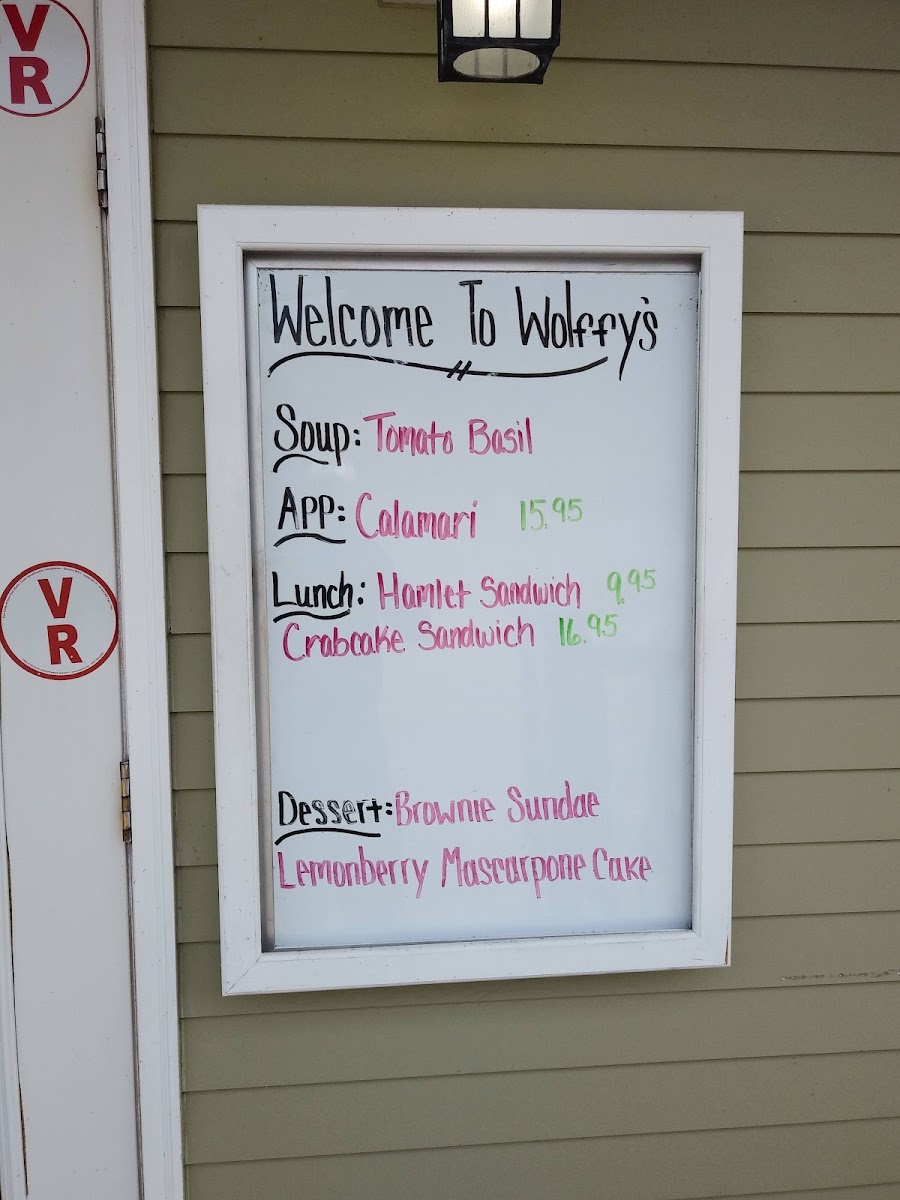 V
R
Welcome To Wolffy's
Soup: Tomato Basil
App: Calamari 15.95
Lunch: Hamlet Sandwich 9.95
Crabcake Sandwich 16.95
V
R
Dessert: Brownie Sundae
Lemonberry Mascarpone Cake